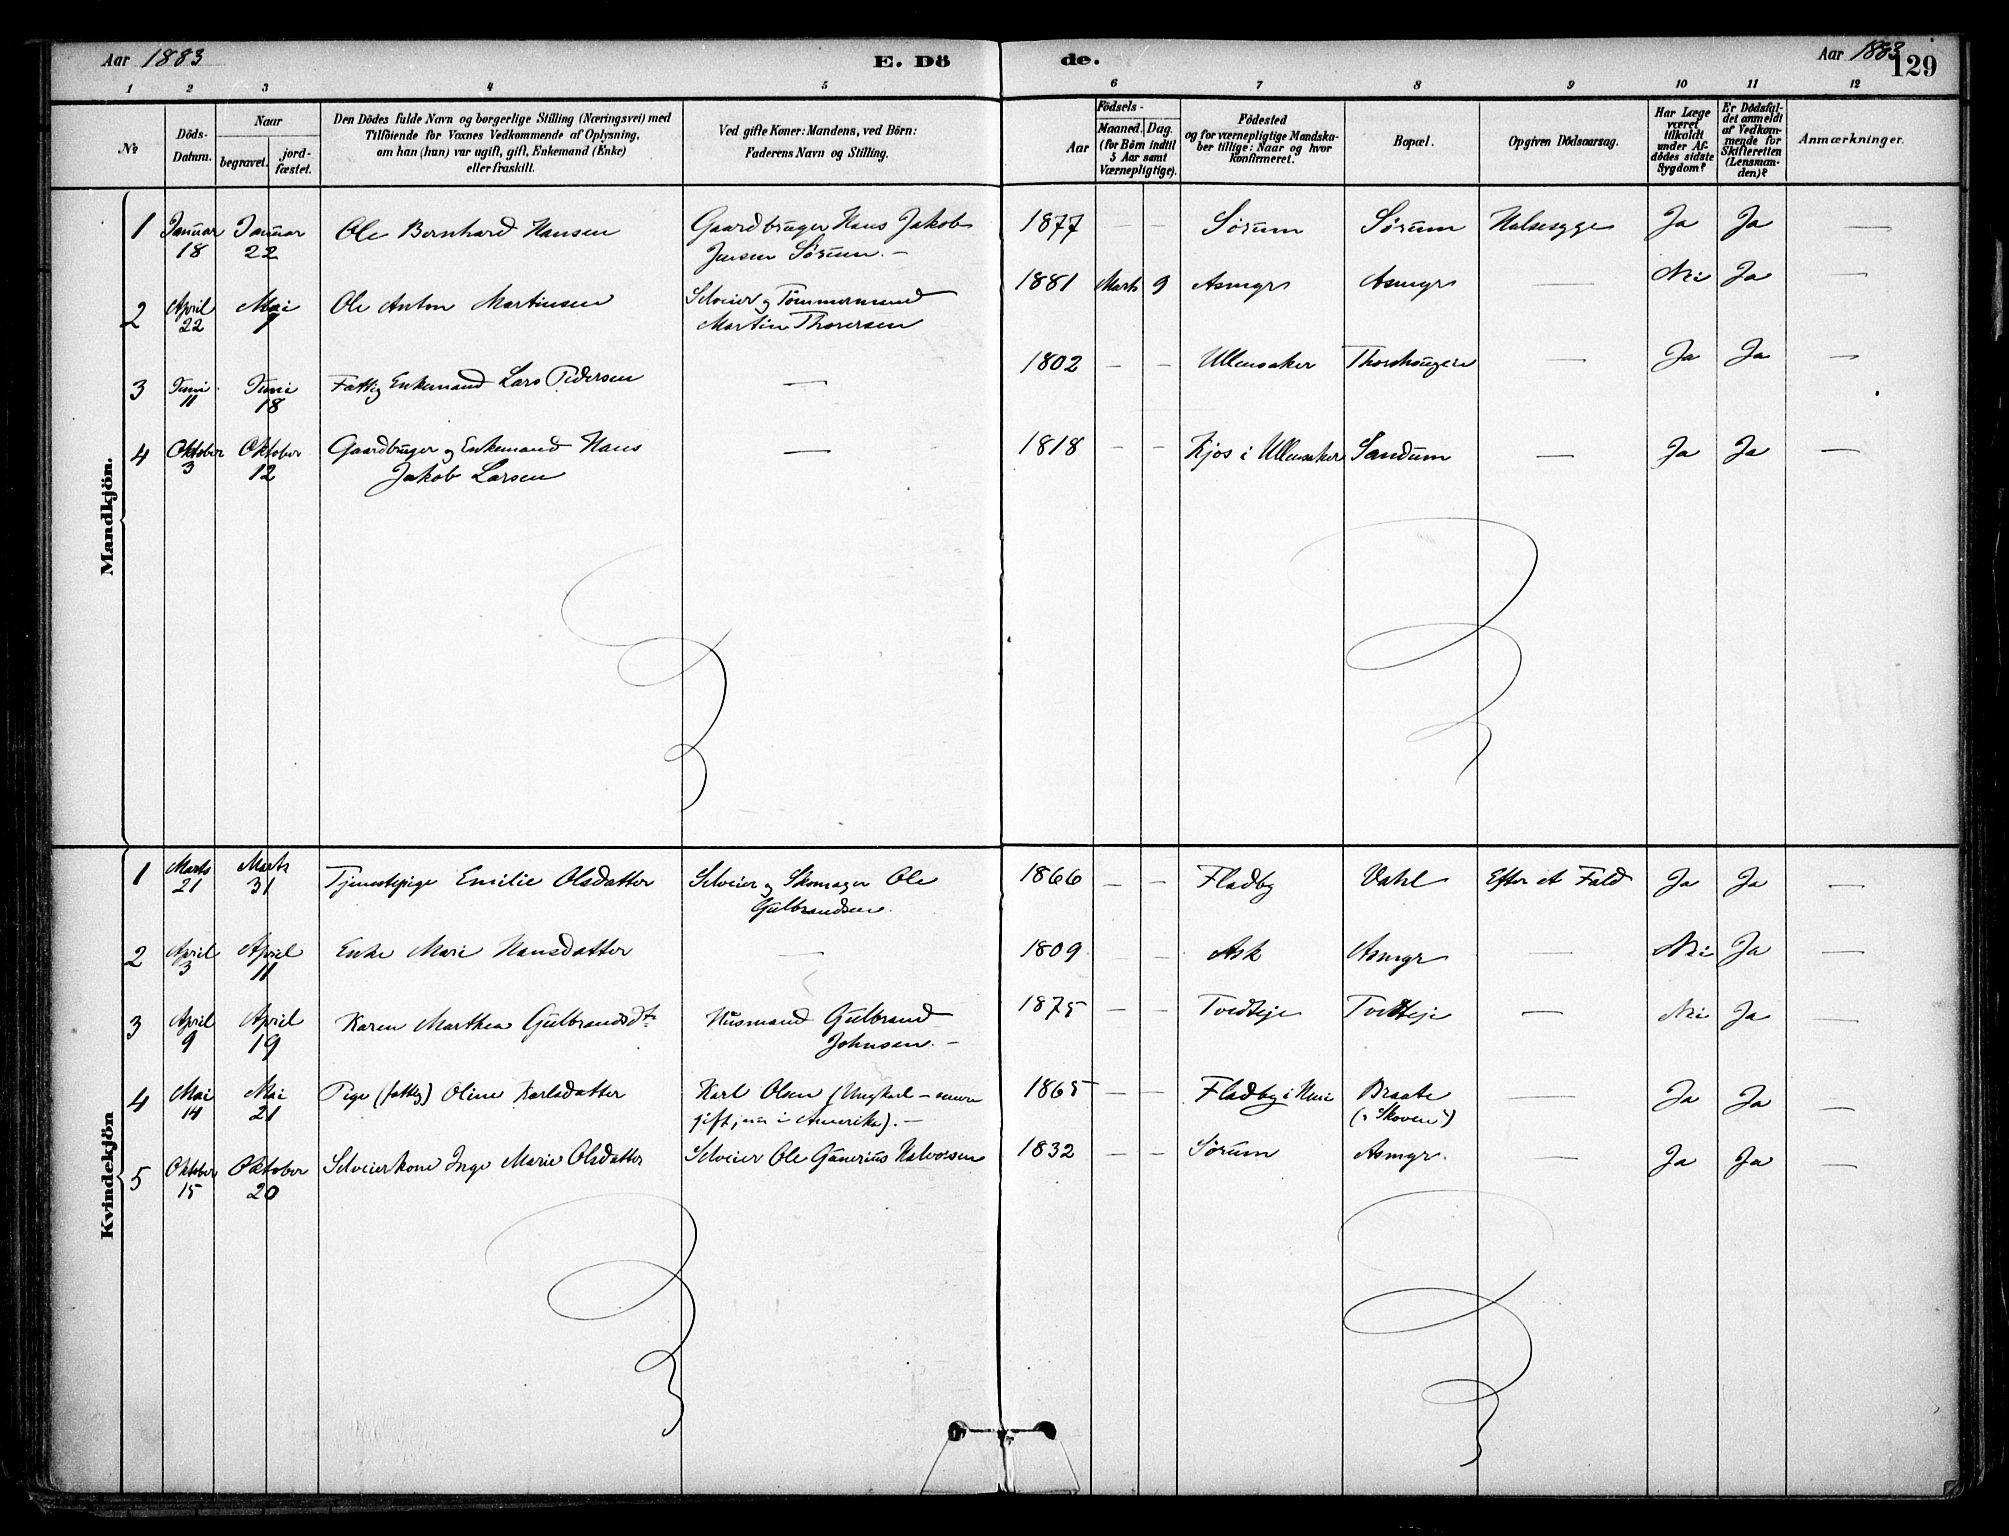 Aar 1883
E. Dö
de.
Aar 1883
129
1 2 3 4 5 6 7 8 9 10 11 12
No
Döds-
Datum.
Naar
begravet.
jord-
fæstet.
Den Dödes fulde Navn og borgerlige Stilling (Næringsvei) med
Tilföiende for Voxnes Vedkommende af Oplysning,
om han (hun) var ugift, gift, Enkemand (Enke)
eller fraskilt.
Ved gifte Koner: Mandens, ved Börn:
Faderens Navn og Stilling.
Födsels-
Aar
Maaned.
Dag.
(for Börn indtil
5 Aar samt
Værnepligtige).
Födested
og for værnepligtige Mandska-
ber tillige: Naar og hvor
konfirmeret.
Bopæl.
Opgiven Dödsaarsag.
Har Læge
været
tilkaldt
under Af-
dödes sidste
Sygdom?
Er Dödsfal-
det anmeldt
af Vedkom-
mende for
Skifteretten
(Lensman-
den)?
Anmærkninger.
Mandkjön.
1 Januar Januar Ole Bernhard Hansen Gaardbruger Hans Jakob 1877 — — Sørum Sørum Halssyge Ja Ja —
18 22 Jensen Sørum. —
2 April Mai Ole Anton Martinsen Selveier og Tømmermand 1881 Marts 9 Asmyr Asmyr — Nei Ja —
22 7 Martin Thoresen
3 Juni Juni Fattig Enkemand Lars Pedersen — 1802 — — Ullensaker — Ja Ja —
11 18
4 Oktober Oktober Gaardbruger og Enkemand Hans — 1818 — — Kjos i Ullensaker Sandum — Ja Ja —
3 12 Jakob Larsen
Kvindekjön
1 Marts Marts Tjenestepige Emilie Olsdatter Selveier og Skomager Ole 1866 — — Fladby Vahl Efter et Fald Ja Ja —
21 31 Gulbrandsen.
2 April April Enke Mari Hansdatter — 1809 — — Ask Asmyr — Nei Ja —
3 11
3 April April Karen Marthea Gulbrandsdt. Husmand Gulbrand 1875 — — Tvedteje Tvedteje — Nei Ja —
9 19 Johnsen. —
4 Mai Mai Pige (fattig) Oline Karlsdatter Karl Olsen (Ungkarl – senere 1865 — — Fladby i Braate — Ja Ja —
14 21 gift, nu i Amerika). — ("Skoven")
5 Oktober Oktober Selveierkone Inge Marie Olsdatter Selveier Ole Gunerius Halvorsen 1832 — — Sørum Asmyr. — Ja Ja —
15 20